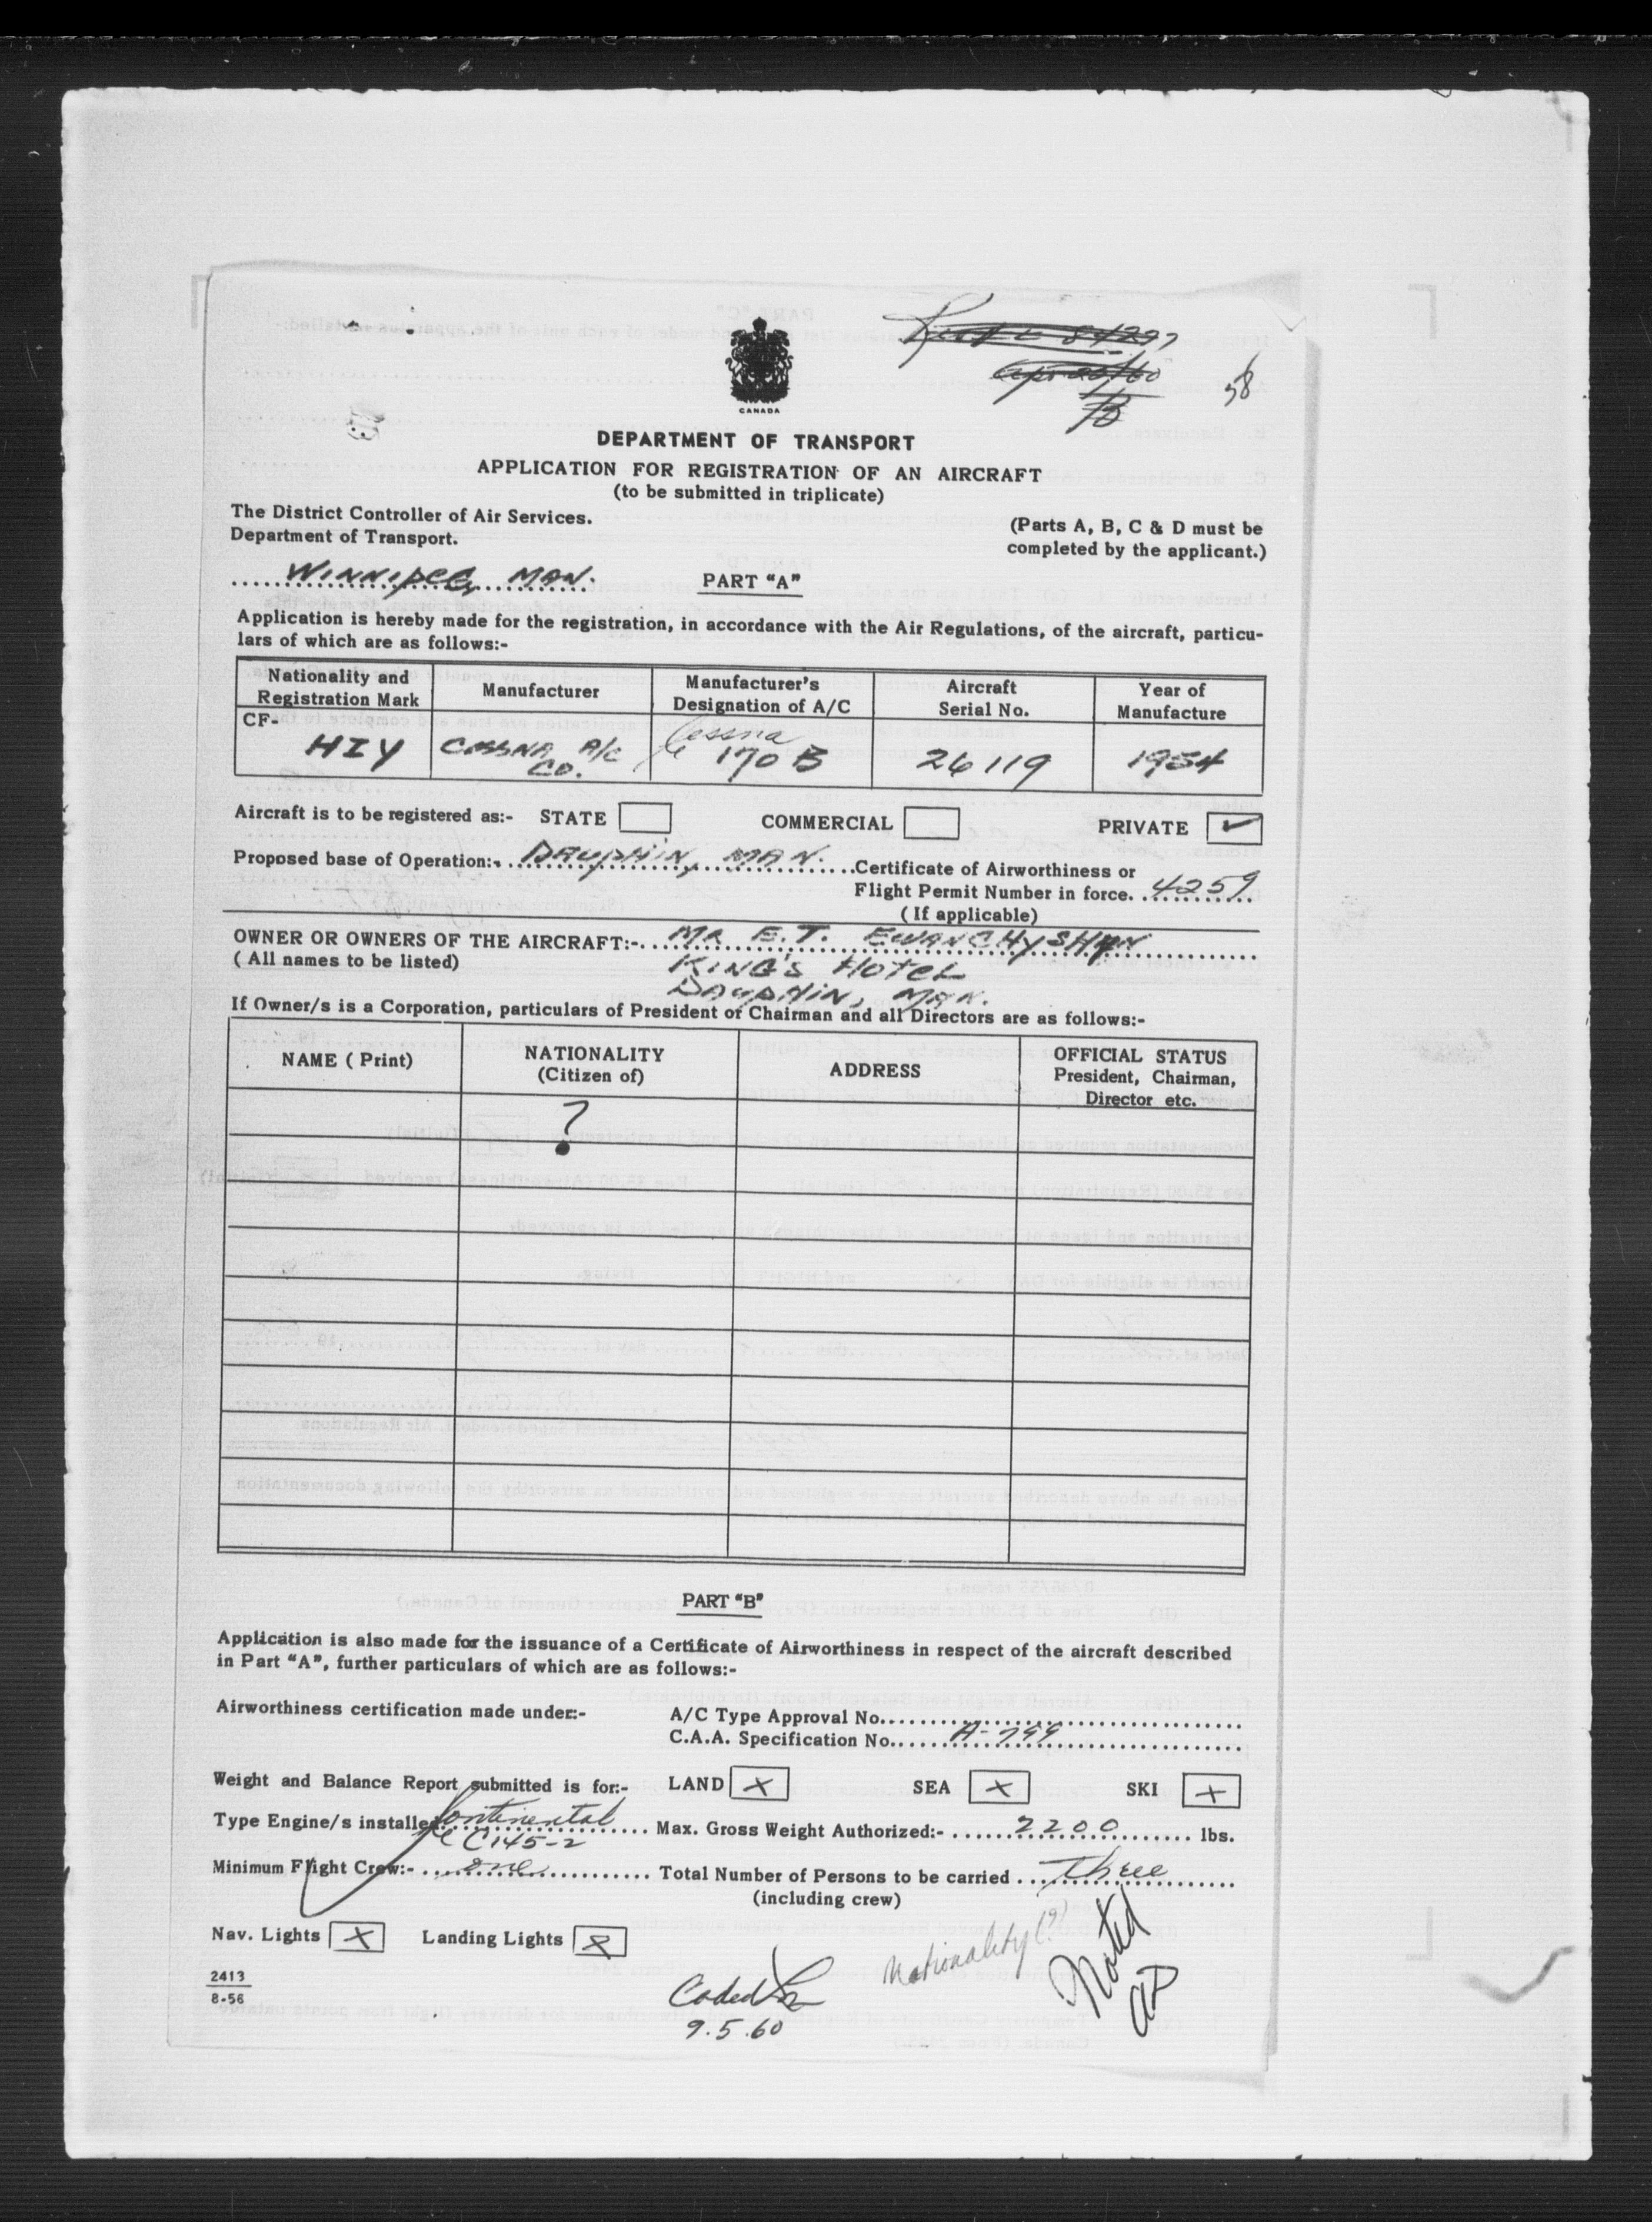 58
CANADA
DEPARTMENT OF TRANSPORT
APPLICATION FOR REGISTRATION OF AN AIRCRAFT
(to be submitted in triplicate)
The District Controller of Air Services.
Department of Transport.
(Parts A, B, C & D must be
completed by the applicant.)
WINNIPEG, MAN.
PART "A"
Application is hereby made for the registration, in accordance with the Air Regulations, of the aircraft, particu-
lars of which are as follows:-
Nationality and Registration Mark Manufacturer Manufacturer's Designation of A/C Aircraft Serial No. Year of Manufacture
CF- HIY CESSNA A/C CO. Cessna 170 B 26119 1954
Aircraft is to be registered as:- STATE COMMERCIAL PRIVATE ✓
Proposed base of Operation:- DAUPHIN, MAN. Certificate of Airworthiness or
Flight Permit Number in force. 4259
(If applicable)
OWNER OR OWNERS OF THE AIRCRAFT:- MR E.T. EWANCHYSHYN
(All names to be listed) KING'S HOTEL
DAUPHIN, MAN.
If Owner/s is a Corporation, particulars of President or Chairman and all Directors are as follows:-
NAME (Print) NATIONALITY (Citizen of) ADDRESS OFFICIAL STATUS President, Chairman, Director etc.
?
PART "B"
Application is also made for the issuance of a Certificate of Airworthiness in respect of the aircraft described
in Part "A", further particulars of which are as follows:-
Airworthiness certification made under:- A/C Type Approval No.
C.A.A. Specification No. A-799
Weight and Balance Report submitted is for:- LAND X SEA X SKI X
Type Engine/s installed Continental C145-2 Max. Gross Weight Authorized:- 2200 lbs.
Minimum Flight Crew:- one Total Number of Persons to be carried three
(including crew)
Nav. Lights X Landing Lights X
Nationality (?)
Noted
2413
8-56
Coded
9.5.60